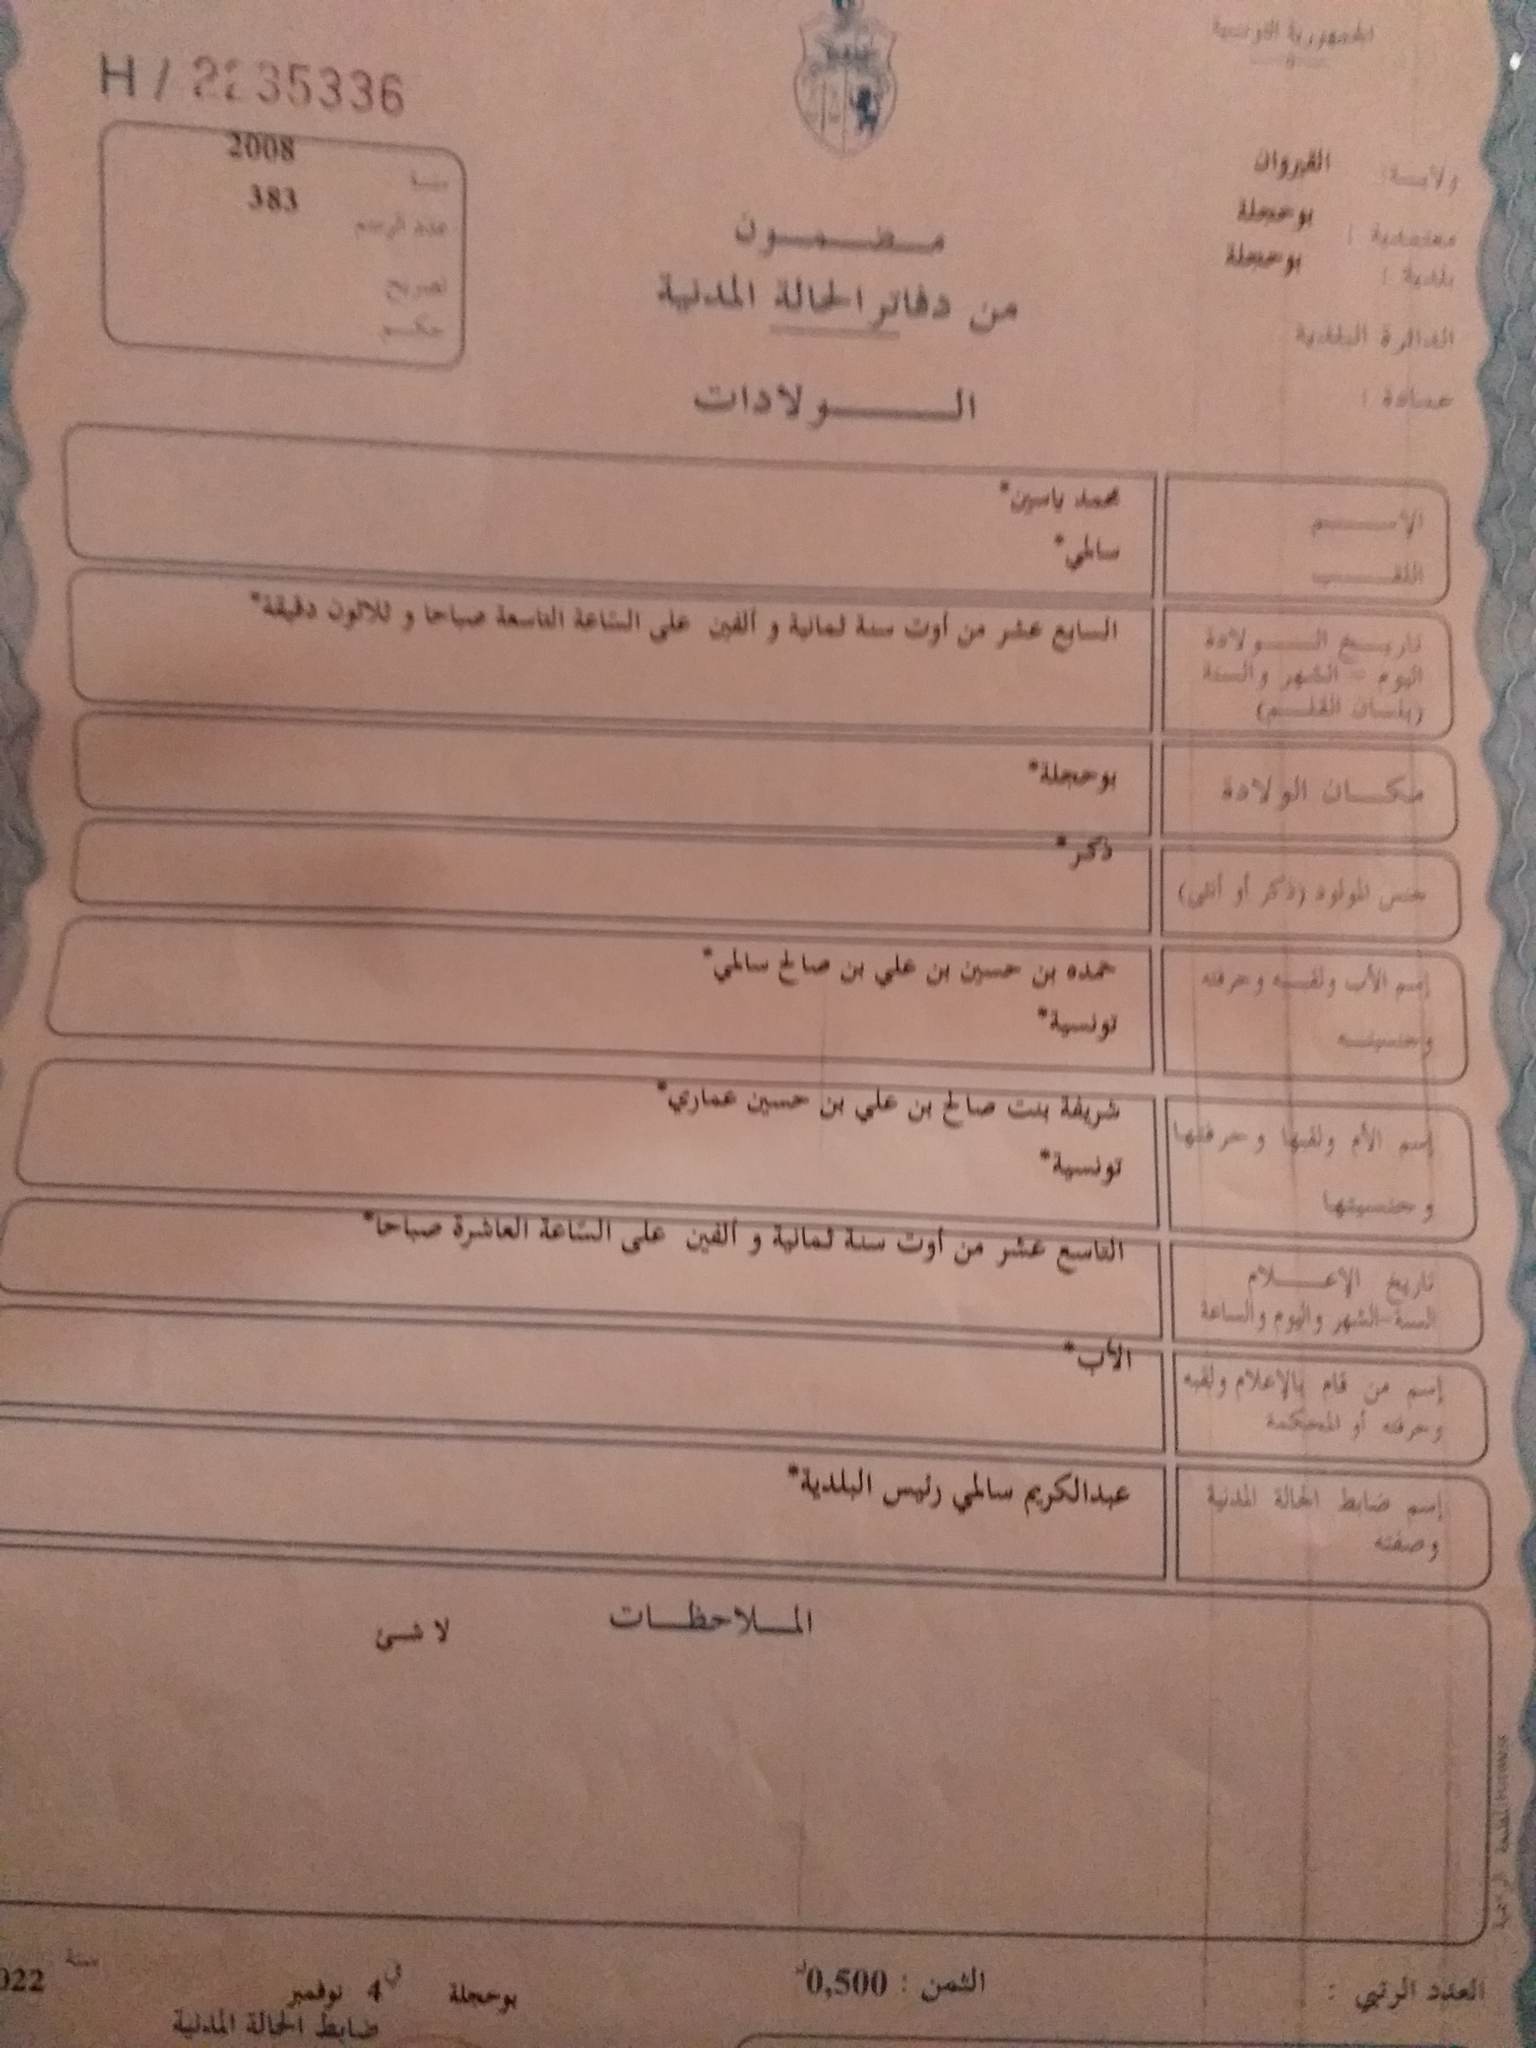 الجمهورية التونسية
H / 2235336
ولايـــة : القيروان
معتمدية : بوحجلة
بلدية : بوحجلة
الدائرة البلدية
عمادة :
2008
عدد الرسم 383
تصريح
حكـم
مـــضـــمـــون
من دفاتر الحالة المدنية
الـــــولادات
الإســـــم محمد ياسين*
اللقـــــب سالمي*
تاريـــخ الـــــولادة السابع عشر من أوت سنة ثمانية و ألفين على الساعة التاسعة صباحا و ثلاثون دقيقة*
اليوم - الشهر والسنة
(بلسان القلـــم)
مكـــان الولادة بوحجلة*
جنس المولود (ذكر أو أنثى) ذكر*
إسم الأب ولقبـــه وحرفته حمده بن حسين بن علي بن صالح سالمي*
وجنسيتـــه تونسية*
إسم الأم ولقبها وحرفتها شريفة بنت صالح بن علي بن حسين عماري*
وجنسيتها تونسية*
تاريخ الإعـــلام التاسع عشر من أوت سنة ثمانية و ألفين على الساعة العاشرة صباحا*
السنة-الشهر واليوم والساعة
إسم من قام بالإعلام ولقبه الأب*
وحرفته أو المحكمة
إسم ضابط الحالة المدنية عبدالكريم سالمي رئيس البلدية*
وصفته
المـــلاحظـــات لا شئ
المطبعة الرسمية
العدد الرتبي : الثمن : 0,500د بوحجلة في 4 نوفمبر سنة 022
ضابط الحالة المدنية